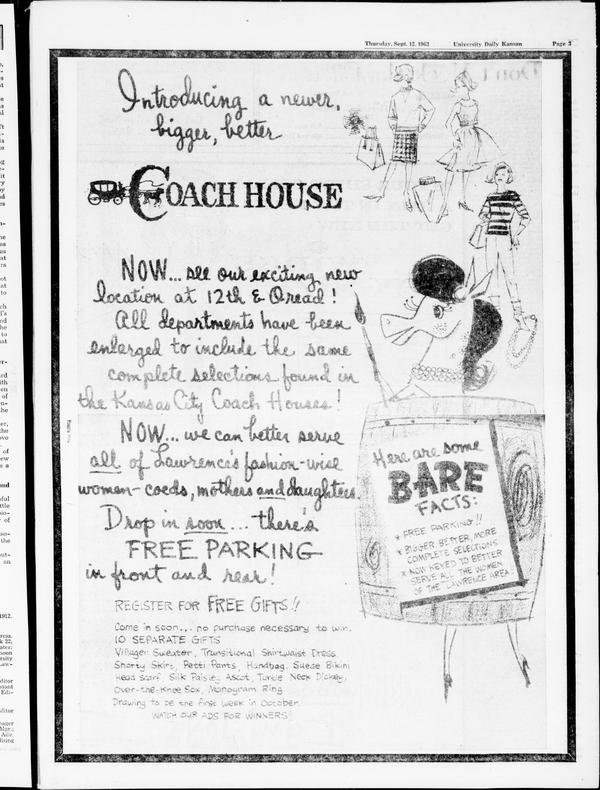 Thursday, Sept. 12, 1963 University Daily Kansan Page 3
Introducing a newer,
bigger, better
COACH HOUSE
NOW... see our exciting new
location at 12th & Oread!
All departments have been
enlarged to include the same
complete selections found in
the Kansas City Coach Houses!
NOW... we can better serve
all of Lawrence's fashion-wise
women-coeds, mothers and daughters.
Drop in soon... there's
FREE PARKING
in front and rear!
REGISTER FOR FREE GIFTS!!
Come in soon... no purchase necessary to win.
10 SEPARATE GIFTS
Villager Sweater, Transitional Shirtwaist Dress,
Shorty Skirt, Petti Pants, Handbag, Suede Bikini
Head Scarf, Silk Paisley Ascot, Turtle Neck Dickey,
Over-the-Knee Sox, Monogram Ring
Drawing to be the first week in October.
WATCH OUR ADS FOR WINNERS!
Here are some
BARE
FACTS:
* FREE PARKING!!
* BIGGER, BETTER, MORE
COMPLETE SELECTIONS
* NOW KEYED TO BETTER
SERVE ALL THE WOMEN
OF THE LAWRENCE AREA.